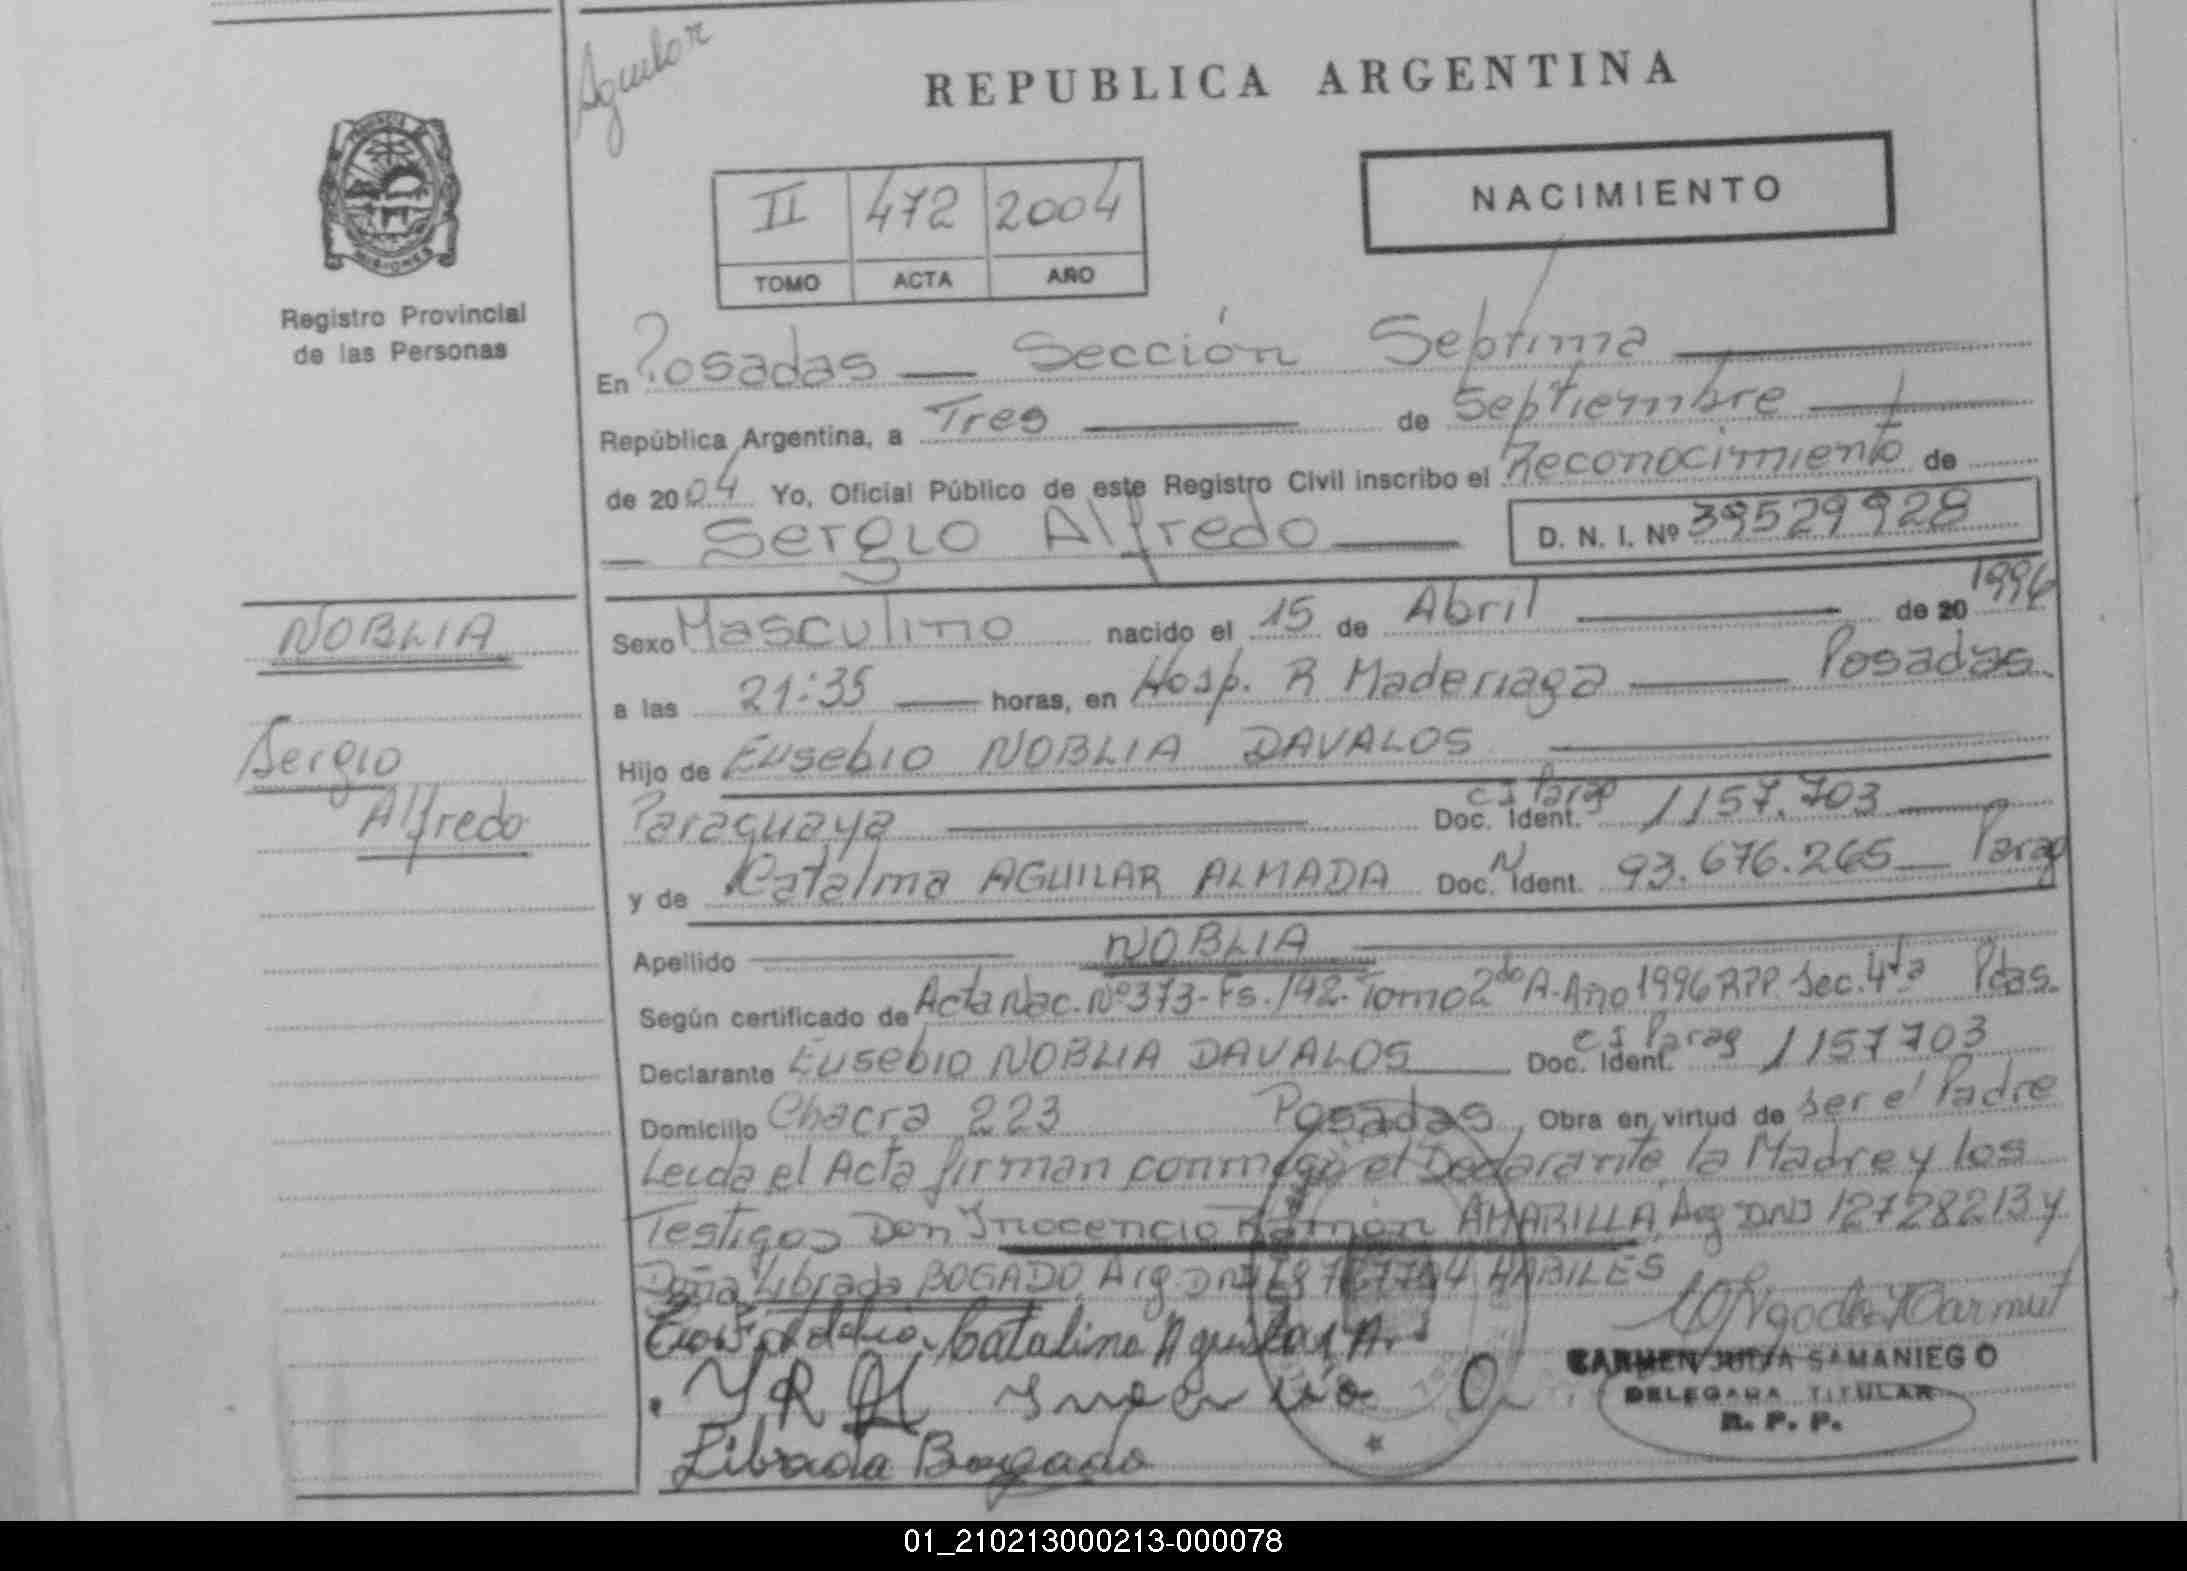 Aguilar
REPUBLICA ARGENTINA
PROVINCIA DE
MISIONES
Registro Provincial
de las Personas
II 472 2004
TOMO ACTA AÑO
NACIMIENTO
En Posadas — Sección Septima
República Argentina, a Tres de Septiembre
de 2004 Yo, Oficial Público de este Registro Civil inscribo el Reconocimiento de
Sergio Alfredo
D. N. I. Nº 39529928
NOBLIA
Sergio
Alfredo
Sexo Masculino nacido el 15 de Abril de 20 1996
a las 21:35 horas, en Hosp. R Maderiaga — Posadas
Hijo de Eusebio NOBLIA DAVALOS
Paraguaya Doc. Ident. CI Parag 1157.703
y de Catalina AGUILAR ALMADA Doc. Ident. N 93.676.265 Parag
Apellido NOBLIA
Según certificado de Acta Nac. Nº 373- Fs. 142- Tomo 2do A- Año 1996 RPP. Sec. 4ta Pdas.
Declarante Eusebio NOBLIA DAVALOS Doc. Ident. CI Parag 1157703
Domicilio Chacra 223 Posadas, Obra en virtud de ser el Padre
Leida el Acta firman conmigo el Declarante, la Madre y los
Testigos Don Inocencio Ramón AMARILLA, Arg DNI 12728213 y
Doña Librada BOGADO, Arg. DNI HABILES
Catalina Aguilar A.
CARMEN JULIA SAMANIEGO
DELEGADA TITULAR
R. P. P.
Librada Bogado
01_210213000213-000078